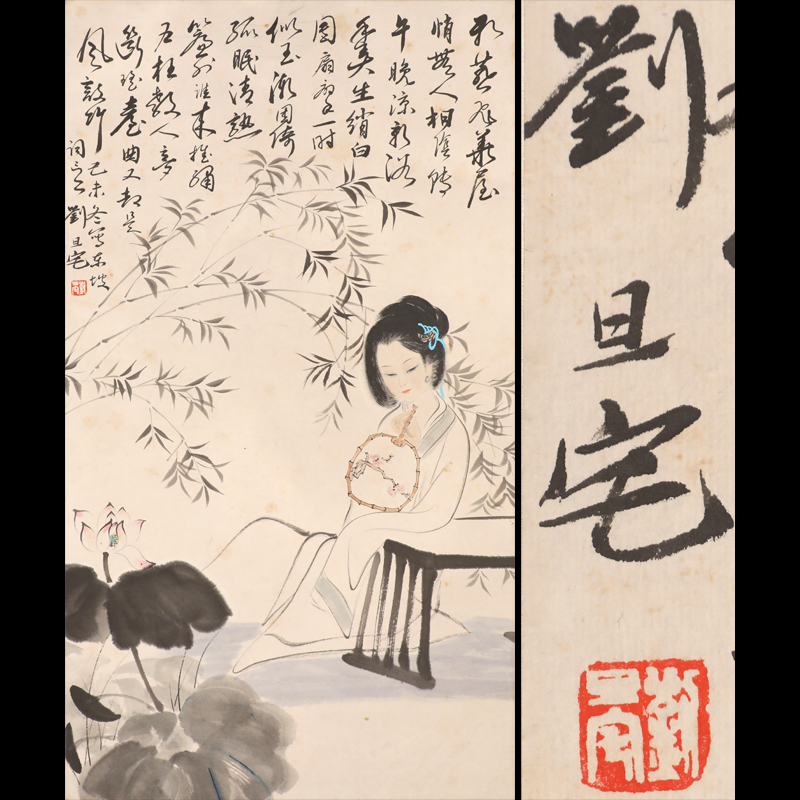 乳燕飛華屋
悄無人桐陰轉
午晚涼新浴
手弄生綃白
團扇扇手一时
似玉漸困倚
孤眠清熟
簾外誰來推繡
户枉教人夢
斷瑤臺曲又却是
風敲竹
己未冬寫東坡
詞意 劉旦宅
劉旦宅
劉旦宅